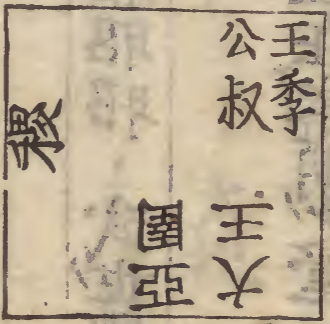 王季
公叔
大王
亞圉
稷